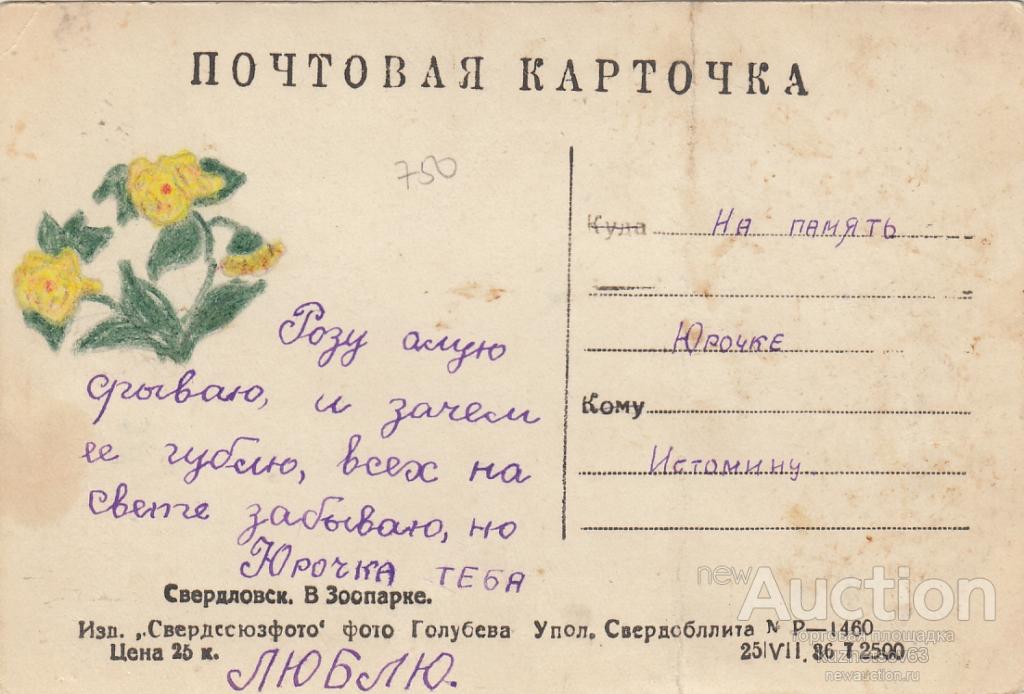 ПОЧТОВАЯ КАРТОЧКА
750
Розу алую
срываю, и зачем
ее гублю, всех на
свете забываю, но
Юрочка тебя
люблю.
Куда На память
Юрочке
Кому
Истомину
Свердловск. В Зоопарке.
Изд. „Свердсоюзфото‘ фото Голубева Упол. Свердобллита № Р—1460
Цена 25 к.
25/VII. 36 Т 2500
newAuction
торговая площадка
kuznetsov63
newauction.ru